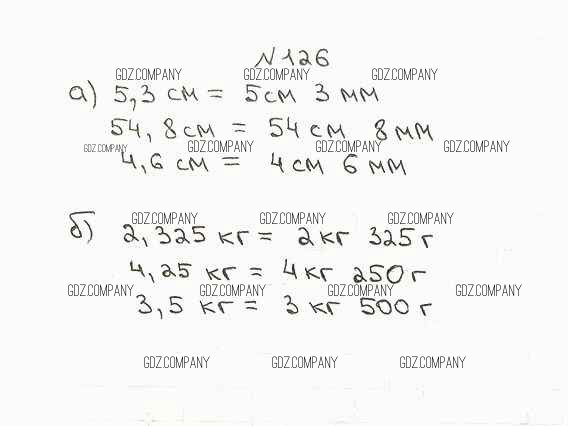 N 126
GDZ.COMPANY GDZ.COMPANY GDZ.COMPANY
а) 5,3 см = 5 см 3 мм
54,8 см = 54 см 8 мм
GDZ.COMPANY GDZ.COMPANY GDZ.COMPANY GDZ.COMPANY
4,6 см = 4 см 6 мм
GDZ.COMPANY GDZ.COMPANY GDZ.COMPANY
б) 2,325 кг = 2 кг 325 г
4,25 кг = 4 кг 250 г
GDZ.COMPANY GDZ.COMPANY GDZ.COMPANY GDZ.COMPANY
3,5 кг = 3 кг 500 г
GDZ.COMPANY GDZ.COMPANY GDZ.COMPANY